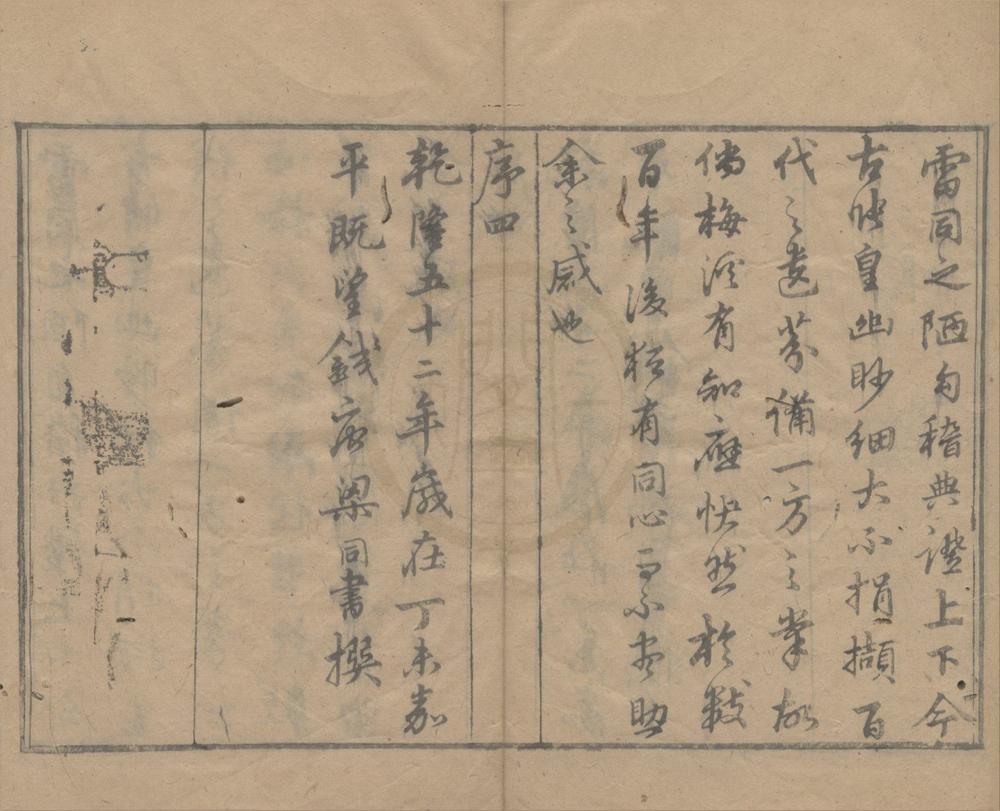 雷同之陋勾稽典證上下今
古張皇幽眇細大不捐擷百
代之遺芬備一方之掌故
倘梅溪有知應快然於數
百年後猶有同心而不啻助
余之感也
序四
乾隆五十二年歲在丁未嘉
平既望錢唐梁同書撰